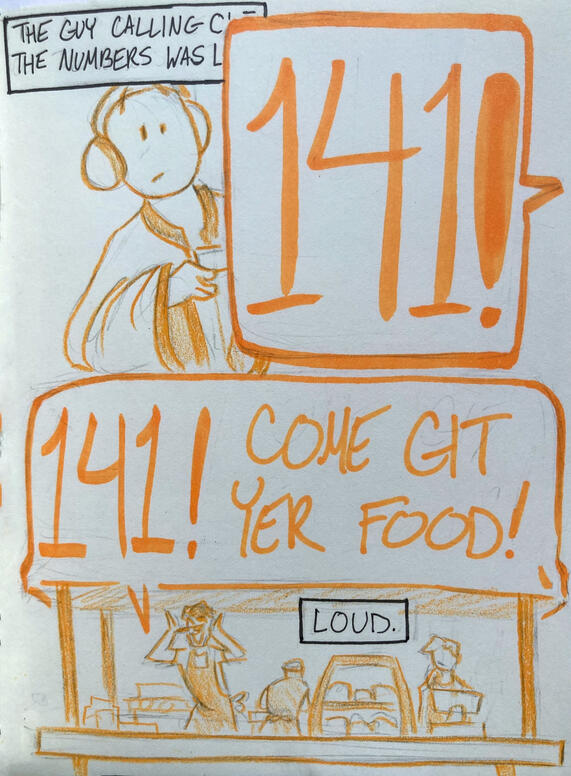 THE GUY CALLING
THE NUMBERS WAS
141!
141! COME GIT
YER FOOD!
LOUD.